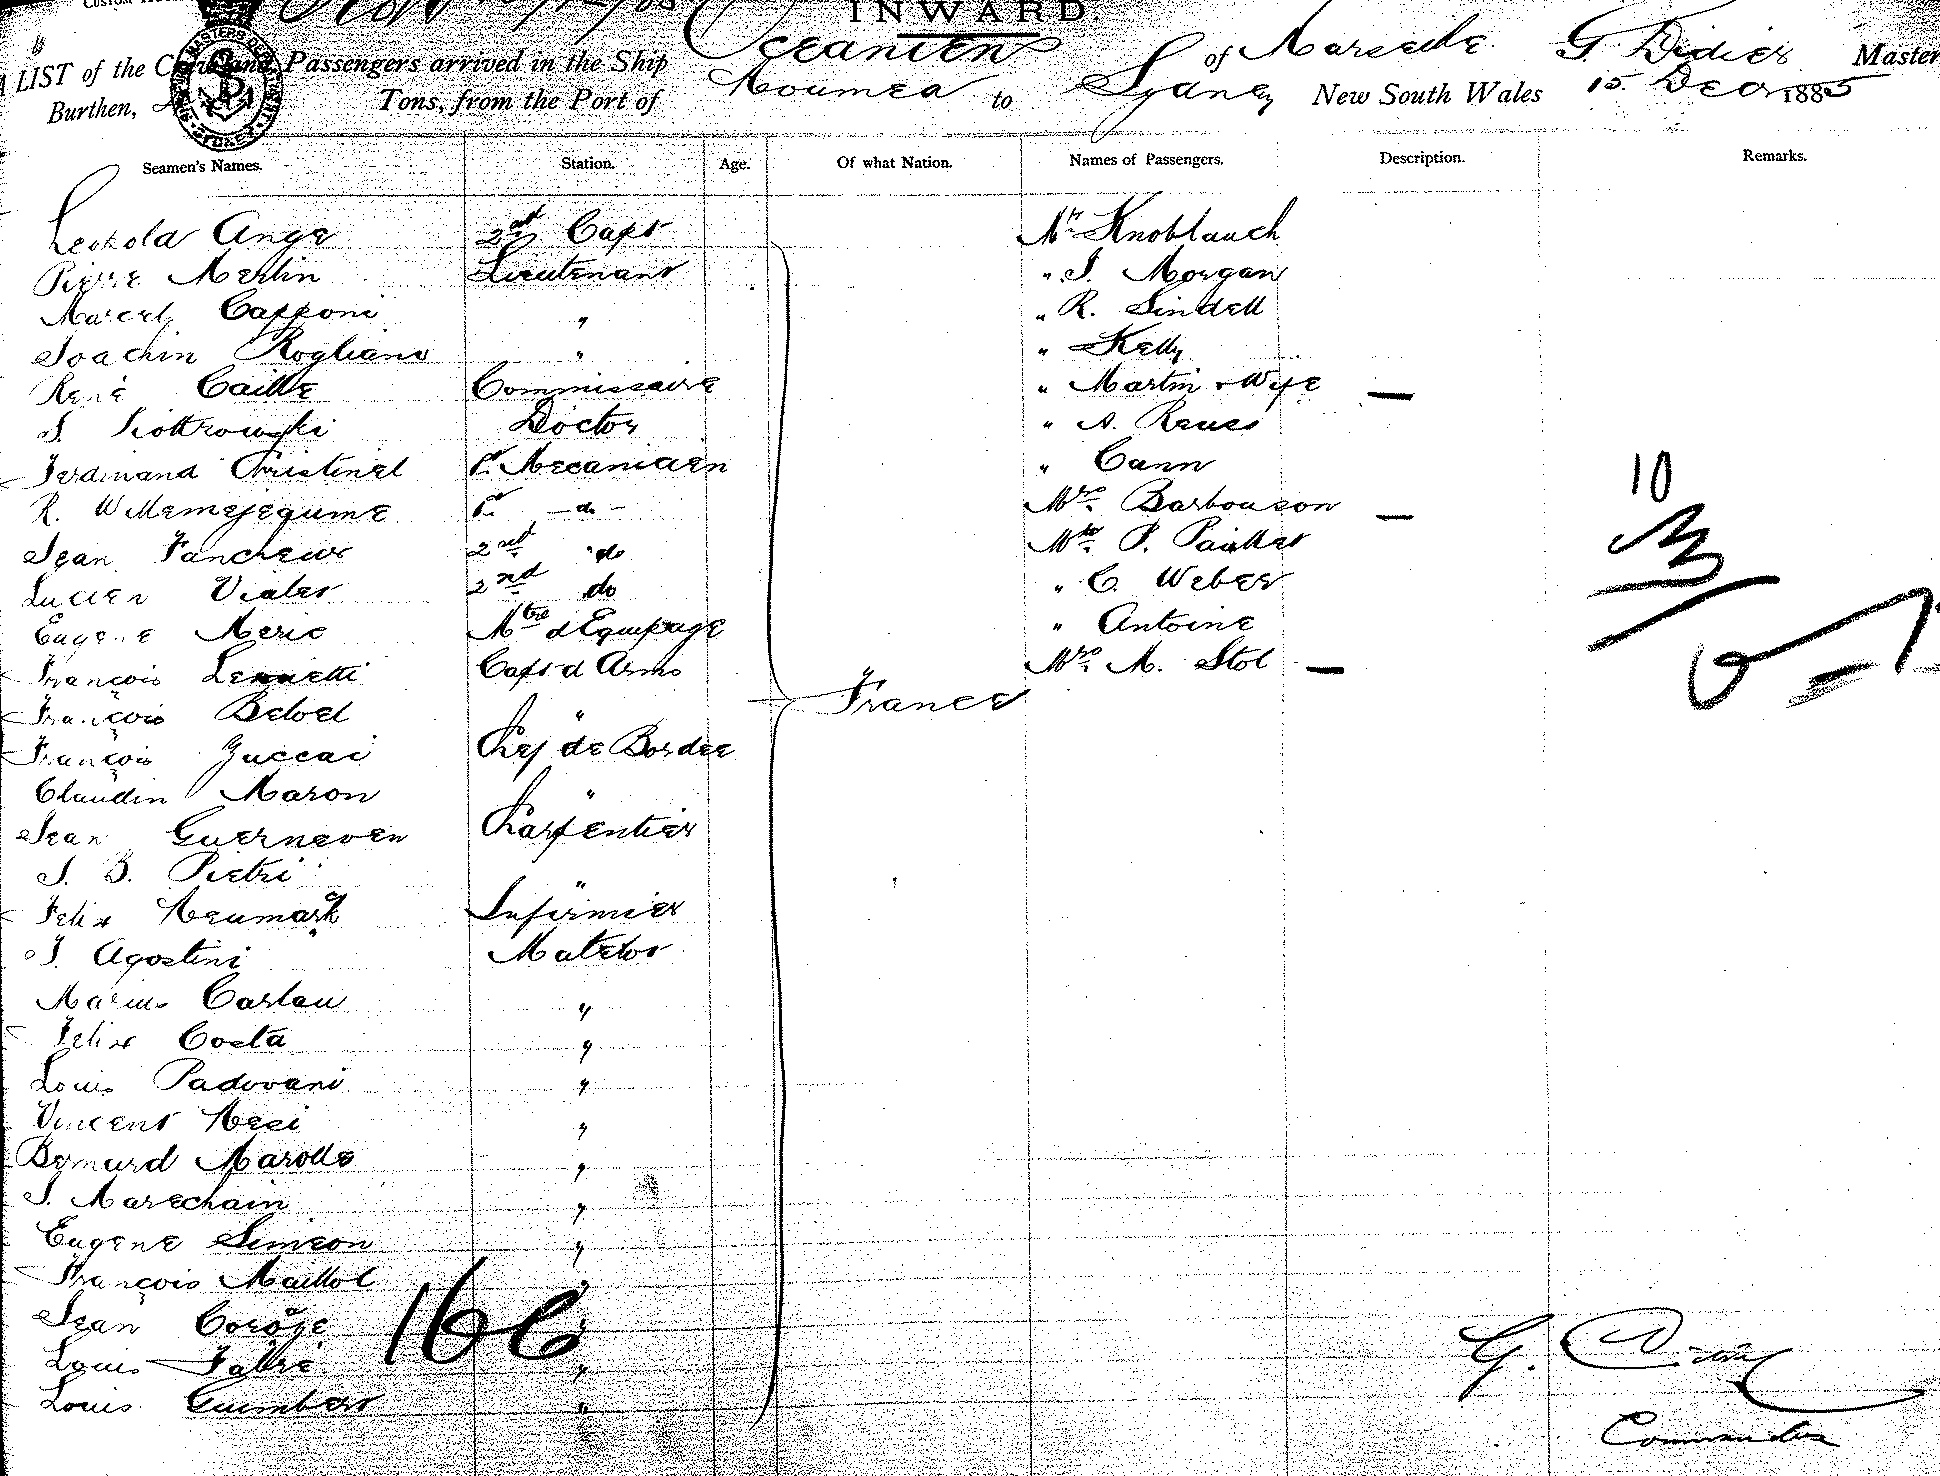 INWARD.
A LIST of the Crew and Passengers arrived in the Ship Oceanien of Marseille G. Didier Master
Burthen, Tons, from the Port of Noumea to Sydney New South Wales 15 Decr 1885
Seamen's Names. Station. Age. Of what Nation. Names of Passengers. Description. Remarks.
Leopold Ange 2nd Capt Mr Knoblauch
Pierre Merlin Lieutenant " J. Morgan
Marcel Capponi " " R. Sindell
Joachim Rogliano " " Kelly
René Caille Commissaire " Martin & Wife —
S. Doctor " A.
Ferdinand Christinel 1er Mecanicien " Cann
R. W 1er do Mrs —
Jean 2nd do Mr P.
Lucien 2nd do " C. Weber
Eugene Meric Mtre d'Equipage " Antoine
François Capt d Arms Mrs M. Stol —
François Belvel " France
François Zuccai Chef de Bordee
Claudin Maron "
Jean Guerneven Charpentier
J. B. Pietri "
Felix Neumark Infirmier
J. Agostini Matelot
Marius Carlau "
Felix Costa "
Louis Padovani "
Vincent "
Bernard "
J. Marechain "
Eugene Simeon "
François Maillol "
Jean "
Louis Fabre "
Louis Guimbert "
10
166
G. Didier
Commander